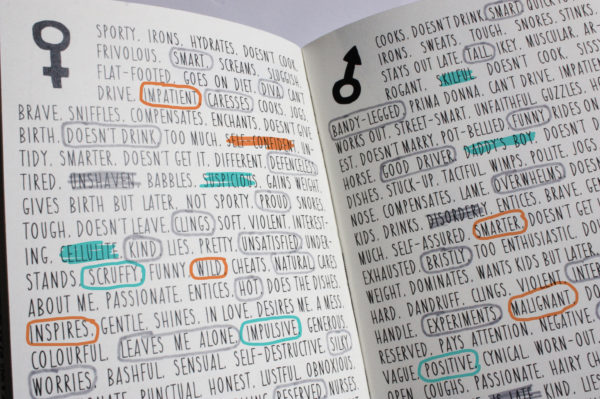 SPORTY. IRONS. HYDRATES. DOESN'T COOK.
FRIVOLOUS. SMART. SCREAMS. SLUGGISH.
FLAT-FOOTED. GOES ON DIET. DIVA. CAN'T
DRIVE. IMPATIENT. CARESSES. COOKS. JOGS.
BRAVE. SNIFFLES. COMPENSATES. ENCHANTS. DOESN'T GIVE
BIRTH. DOESN'T DRINK TOO MUCH. SELF-CONFIDENT. IN-
TIDY. SMARTER. DOESN'T GET IT. DIFFERENT. DEFENCELESS.
TIRED. UNSHAVEN. BABBLES. SUSPICIOUS. GAINS WEIGHT.
GIVES BIRTH BUT LATER. NOT SPORTY. PROUD. SNORES.
TOUGH. DOESN'T LEAVE. CLINGS. SOFT. VIOLENT. INTEREST-
ING. CELLULITE. KIND. LIES. PRETTY. UNSATISFIED. UNDER-
STANDS. SCRUFFY. FUNNY. WILD. CHEATS. NATURAL. CARES
ABOUT ME. PASSIONATE. ENTICES. HOT. DOES THE DISHES.
INSPIRES. GENTLE. SHINES. IN LOVE. DESIRES ME. A MESS.
COLOURFUL. LEAVES ME ALONE. IMPULSIVE. GENEROUS.
WORRIES. BASHFUL. SENSUAL. SELF-DESTRUCTIVE. SULKY.
PUNCTUAL. HONEST. LUSTFUL. OBNOXIOUS.
RESERVED. NURSES.
COOKS. DOESN'T DRINK. SMART. QUICK
IRONS. SWEATS. TOUGH. SNORES. STINKS.
STAYS OUT LATE. TALL. KEY. MUSCULAR. AR-
ROGANT. SKILFUL. DOESN'T COOK. SISSY
BANDY-LEGGED. PRIMA DONNA. CAN'T DRIVE. IMPATIENT
WORKS OUT. STREET-SMART. UNFAITHFUL. GUZZLES.
EST. DOESN'T MARRY. POT-BELLIED. FUNNY. RIDES ON
HORSE. GOOD DRIVER. DADDY'S BOY. DOESN'T
DISHES. STUCK-UP. TACTFUL. WIMPS. POLITE. JOGS.
NOSE. COMPENSATES. LAME. OVERWHELMS. DOESN'T
KIDS. DRINKS. DISORDERLY. ENTICES. BRAVE. GEN
MUCH. SELF-ASSURED. SMARTER. DOESN'T GET
EXHAUSTED. BRISTLY. TOO ENTHUSIASTIC. DOU
WEIGHT. DOMINATES. WANTS KIDS BUT LATER.
HARD. DANDRUFF. CLINGS. VIOLENT. INTER
HANDLE. EXPERIMENTS. MALIGNANT. DO
RESERVED. PAYS ATTENTION. NEGATIVE.
VAGUE. POSITIVE. CYNICAL. WORN-OUT.
OPEN. COUGHS. PASSIONATE. HAIRY CH
IS LATE. KIND. LIES.